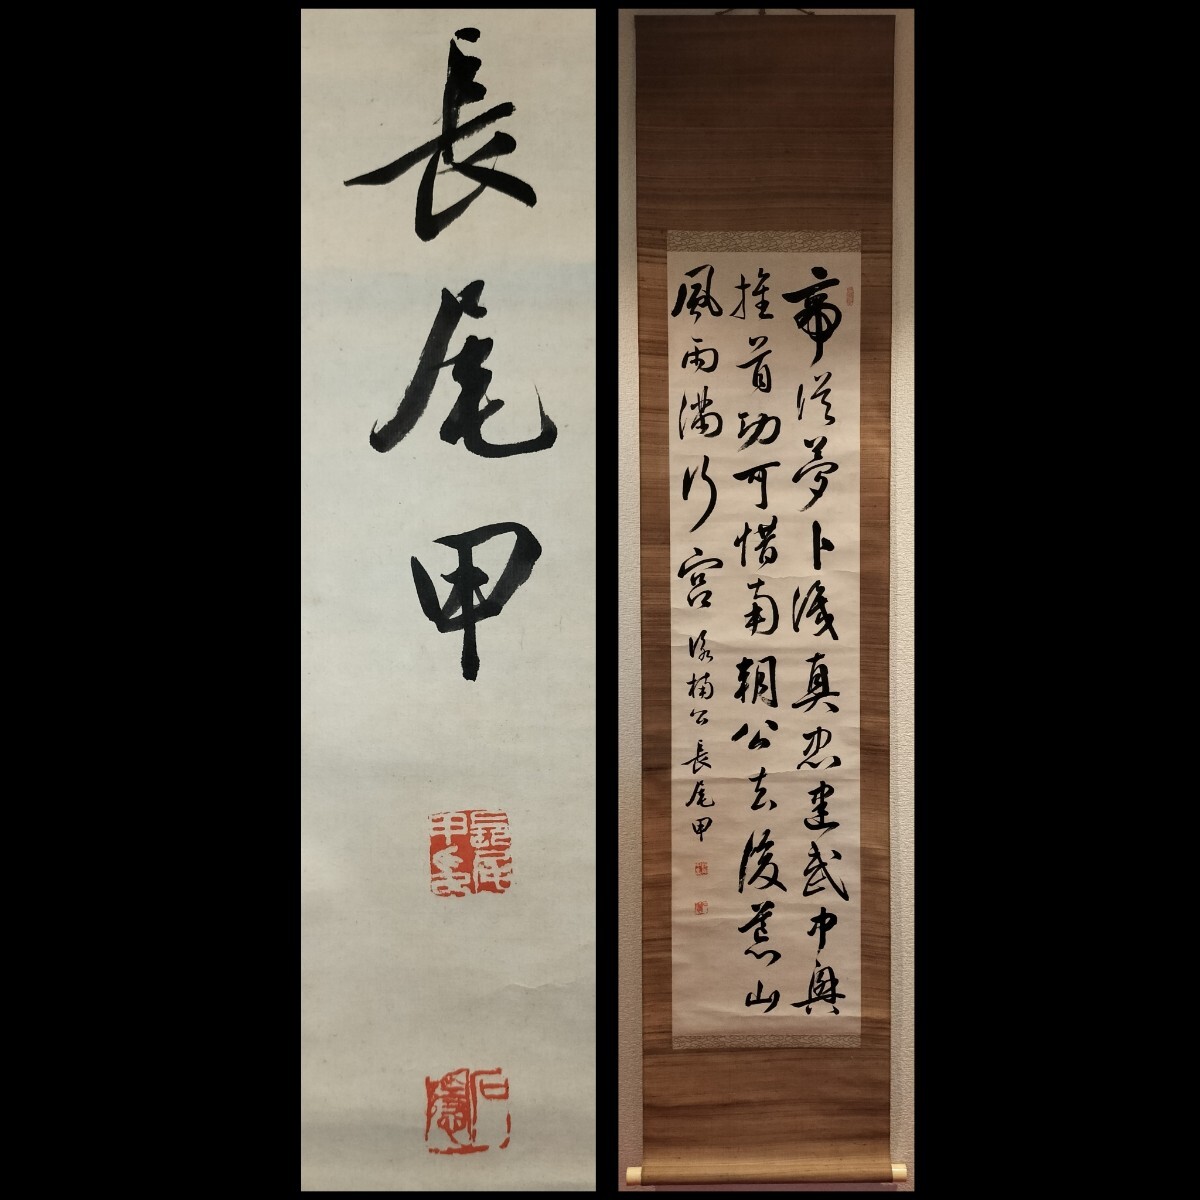 長尾甲
長尾甲印
石隱
帝從夢卜識真忠建武中興
推首功可惜南朝公去後荒山
風雨滿行宮 詠楠公 長尾甲